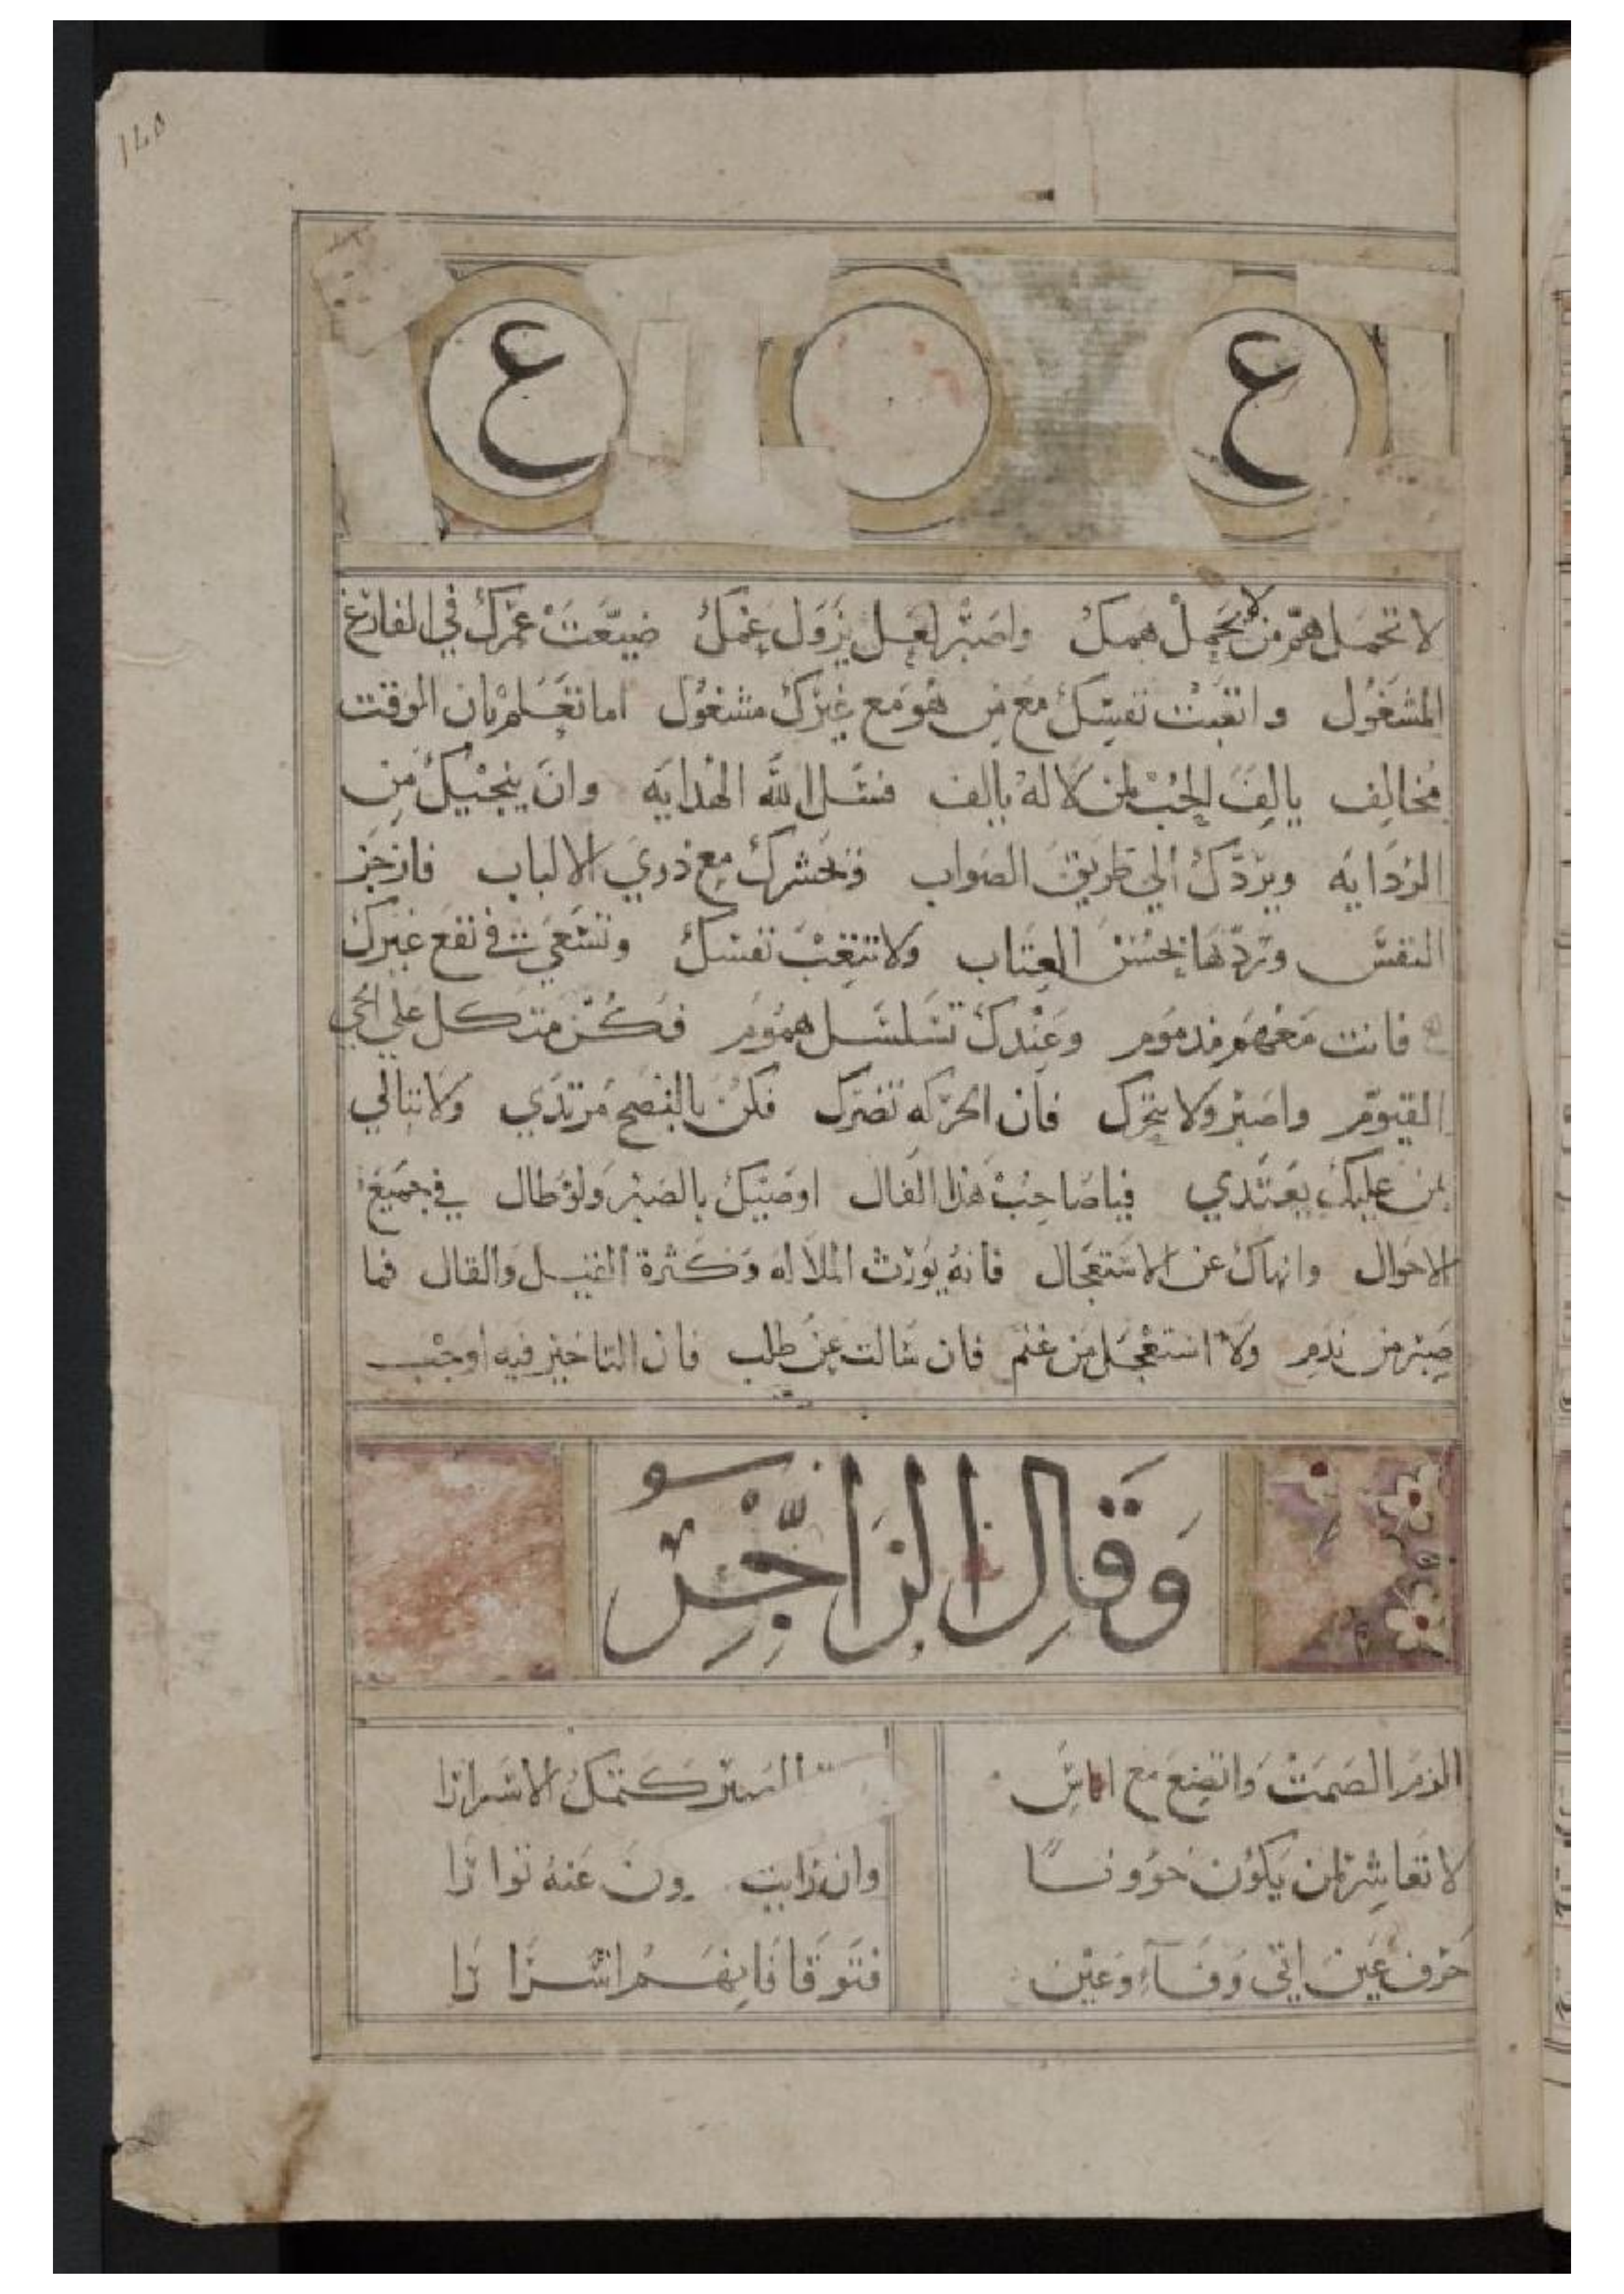 ع ع
لا تحمل هم من لا يحمل همك واصبر لعل يزول غمك ضيعت عمرك في الفارغ
المشغول واتعبت نفسك مع من هو مع غيرك مشغول اما تعلم بان الوقت
مخالف يالف الحب لمن لا له يالف فسل الله الهدايه وان ينجيك من
الردايه ويردك الي طريق الصواب ويحشرك مع ذوي الالباب فازجر
النفس وتردها بحسن العتاب ولا تتعب نفسك وتسعي في نفع غيرك
فانت مغموم مذموم وعندك تسلسل هموم فكن متكل علي الحي
القيوم واصبر ولا تتحرك فان الحركه تضرك فكن بالنصح مرتدي ولا تبالي
بمن عليك يعتدي فيا صاحب هذا الفال اوصيك بالصبر ولو طال في جميع
الاحوال وانهاك عن الاستعجال فانه يورث الملاله وكثرة القيل والقال فما
صبر من ندم ولا استعجل من غنم فان سالت عن طلب فان التاخير فيه اوجب
وقال الزاجر
الزم الصمت واتضع مع الناس الصبر كتمك الاسرارا
لا تعاشر لمن يكون خوونا وان رايت عنه توارا
حرف عين اتي وفاء وعين فتوقا فانهم اشرارا